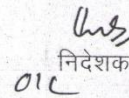 निदेशक
OIC